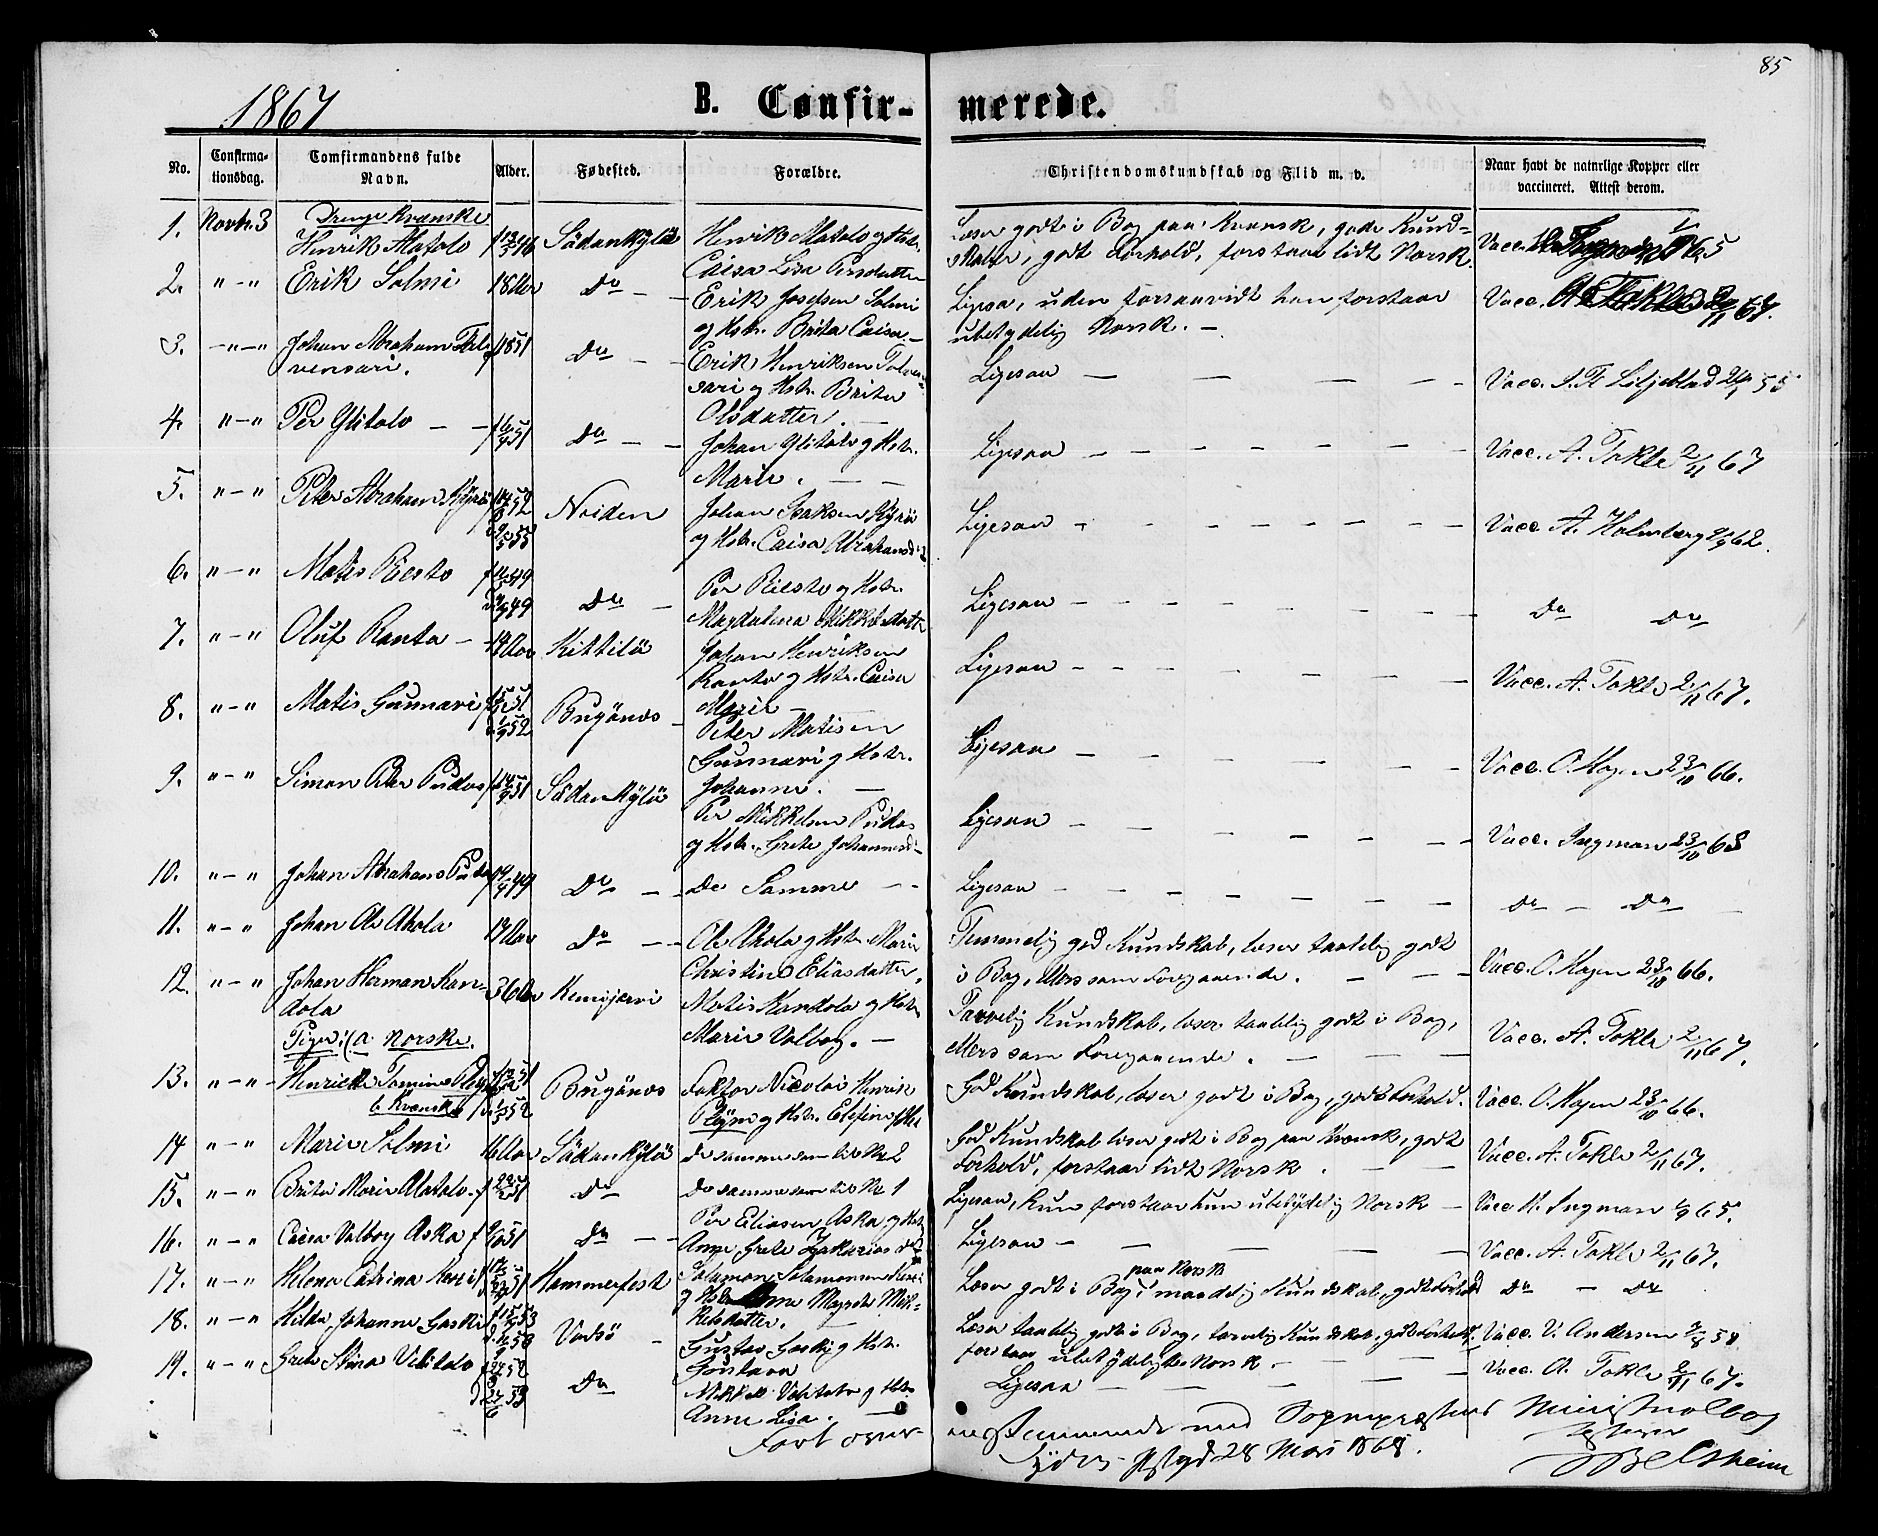 85
1867
B. Confir-
merede.
No.
Confirma-
tionsdag.
Comfirmandens fulde
Navn.
Alder.
Fødested.
Forældre.
Christendomskundskab og Flid m. v.
Naar havt de naturlige Kopper eller
vaccineret. Attest derom.
Drenge Kvænske
1. Novbr. 3 Henrik Alatalo Sådankylä Henrik Alatalo og Hstr.
Caisa Lisa Persdatter
Læser godt i Bog paa Kvænsk, gode Kund-
skaber, godt Forhold, forstaar lidt Norsk.
2. " - " Erik Salmi 18 Aar Do - - Erik Josefsen Salmi
og Hstr. Brita Caisa. -
Ligesaa, uden forsaavidt han forstaar
ubetydelig Norsk. -
Vacc. A. Takle 2/11 67.
3. - " - " Johan Abraham Tal-
vensari. 1851 Do - - Erik Henriksen Talven-
sari og Hstr. Brita
Olsdatter. -
Ligesaa - - - - Vacc. Liljeblad 55
4. " - " Per Ylitalo - - Do - - Johan Ylitalo og Hstr.
Marie. - -
Ligesaa - - - - - - Vacc. A. Takle 2/11 67
5. " - " Peter Abraham Kyrö Neiden Johan Isaksen Kyrö
og Hstr. Caisa Abrahamsd.
Ligesaa - - - - - - Vacc. A. Holmberg 62.
6. " - " Matis Riesto Do - Per Riesto og Hstr.
Magdalena Mikkelsdatter
Ligesaa - - - - - - Do Do
7. " - " Oluf Ranta - 19 Aar Kittilä Johan Henriksen
Ranta og Hstr. Caisa
Marie - -
Ligesaa - - - - - - Vacc. A. Takle 2/11 67.
8. " - " Matis Gunnari Bugönæs - Peter Matisen
Gunnari og Hstr.
Johanne. -
Ligesaa - - - - - - Vacc. O. Hagen 23/10 66.
9. " - " Simon Peter Pudas Sådankylä Per Mikkelsen Pudas
og Hstr. Grete Johannesd. -
Ligesaa - - - - - - Vacc. Ingman 23/10 63
10. " - " Johan Abraham Pudas Do - - De Samme - -
Ligesaa - - - - - - Do - Do
11. " - " Johan Ole Ahola 19 Aar Do - - Ole Ahola og Hstr. Marie
Christine Eliasdatter,
Temmelig god Kundskab, læser taalelig godt
i Bog, ellers som Foregaaende. - - -
Vacc. O. Hagen 23/10 66.
12. " - " Johan Herman Kan-
dola Kemijærvi Matis Kandola og Hstr.
Marie Valbog. -
Tarvelig Kundskab, læser taalelig godt i Bog,
ellers som Foregaaende. - - -
Vacc. A. Takle 2/11 67.
Piger: (a Norske.
13. " - " Bugönæs Faktor Nicolai Henrik
God Kundskab, læser godt i Bog, godt Forhold.
Vacc. O. Hagen 23/10 66.
b Kvænske
14 " - " Marie Salmi 16 Aar Sådankylä de samme som til No 2
God Kundskab læser godt i Bog paa Kvænsk, godt
Forhold, forstaar lidt Norsk. - -
Vacc. A. Takle 2/11 67.
15. " - " Brita Marie Alatalo. Do de samme som til No 1
Ligesaa, kun forstaar hun ubetydelig Norsk -
Vacc. Ingman 65.
16. " - " Caisa Valbog Aska Do - - Per Eliasen Aska og Hstr.
Anne Grete Zakariasdtr
Ligesaa - - - - - Vacc. A. Takle 2/11 67.
17. " - " Helena Catrina Hammerfest Solamon Solamonsen
og Hstr. Anne Magreta Mik-
kelsdatter. -
paa Norsk
Læser godt i Bog, maadelig Kundskab, godt Forhold
Do - Do
18. " - " Hilda Johanna Gaski Vadsö - Gustav Gaski og Hstr.
Gustava
Læser taalelig godt i Bog, tarvelig Kundskab, godt Forhold.
forstaar ubetydelig Norsk. - - -
Vacc. V. Andersen 58.
19. " - " Grete Stina Do Mikkel og Hstr.
Anne Lisa. -
Ligesaa - - - - - Vacc. A. Takle 2/11 67.
Fort over
Sognepræstens
28 Mai 1868.
J Belsheim